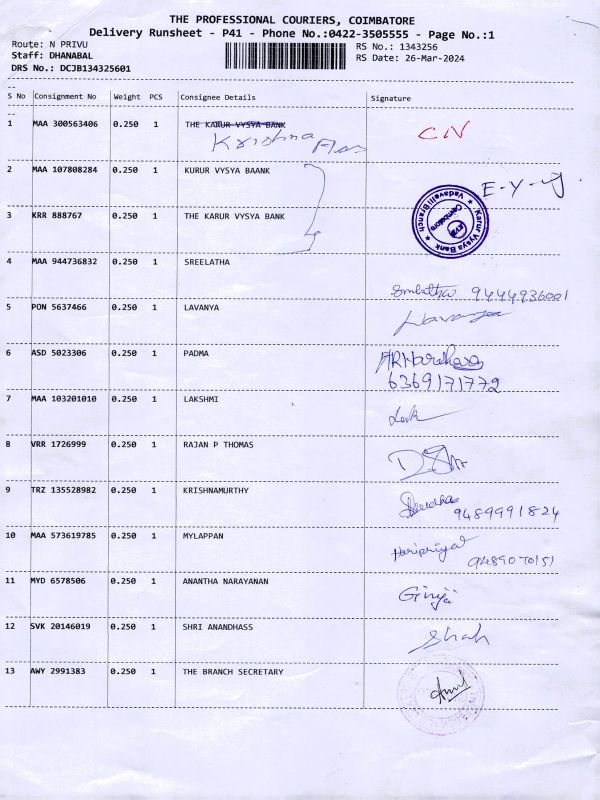 THE PROFESSIONAL COURIERS, COIMBATORE
Delivery Runsheet - P41 - Phone No.:0422-3505555 - Page No.:1
Route: N PRIVU
RS No.: 1343256
Staff: DHANABAL
RS Date: 26-Mar-2024
DRS No.: DCJB134325601
S No Consignment No Weight PCS Consignee Details Signature
1 MAA 300563406 0.250 1 THE KARUR VYSYA BANK
Krishna
2 MAA 107808284 0.250 1 KURUR VYSYA BAANK
E-Y-
3 KRR 888767 0.250 1 THE KARUR VYSYA BANK
Karur Vysya Bank
Vadavalli Branch
Coimbatore
4 MAA 944736832 0.250 1 SREELATHA
5 PON 5637466 0.250 1 LAVANYA
6 ASD 5023306 0.250 1 PADMA
6369171772
7 MAA 103201010 0.250 1 LAKSHMI
8 VRR 1726999 0.250 1 RAJAN P THOMAS
9 TRZ 135528982 0.250 1 KRISHNAMURTHY
9489991824
10 MAA 573619785 0.250 1 MYLAPPAN
Haripriya
9489070151
11 MYD 6578506 0.250 1 ANANTHA NARAYANAN
Girija
12 SVK 20146019 0.250 1 SHRI ANANDHASS
Shah
13 AWY 2991383 0.250 1 THE BRANCH SECRETARY